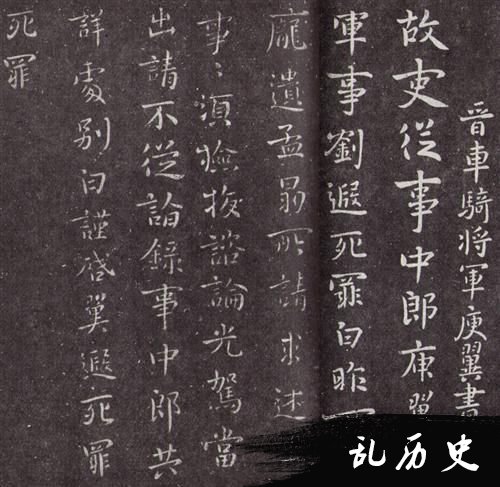 晉車騎將軍庾翼書
故吏從事中郎庾翼
軍事劉遐死罪白昨
龐遺孟昌所請求述
事〻須檢校諮論光駕當
出請不從諭錄事中郎共
詳處別白謹啓翼遐死罪
死罪
乱历史